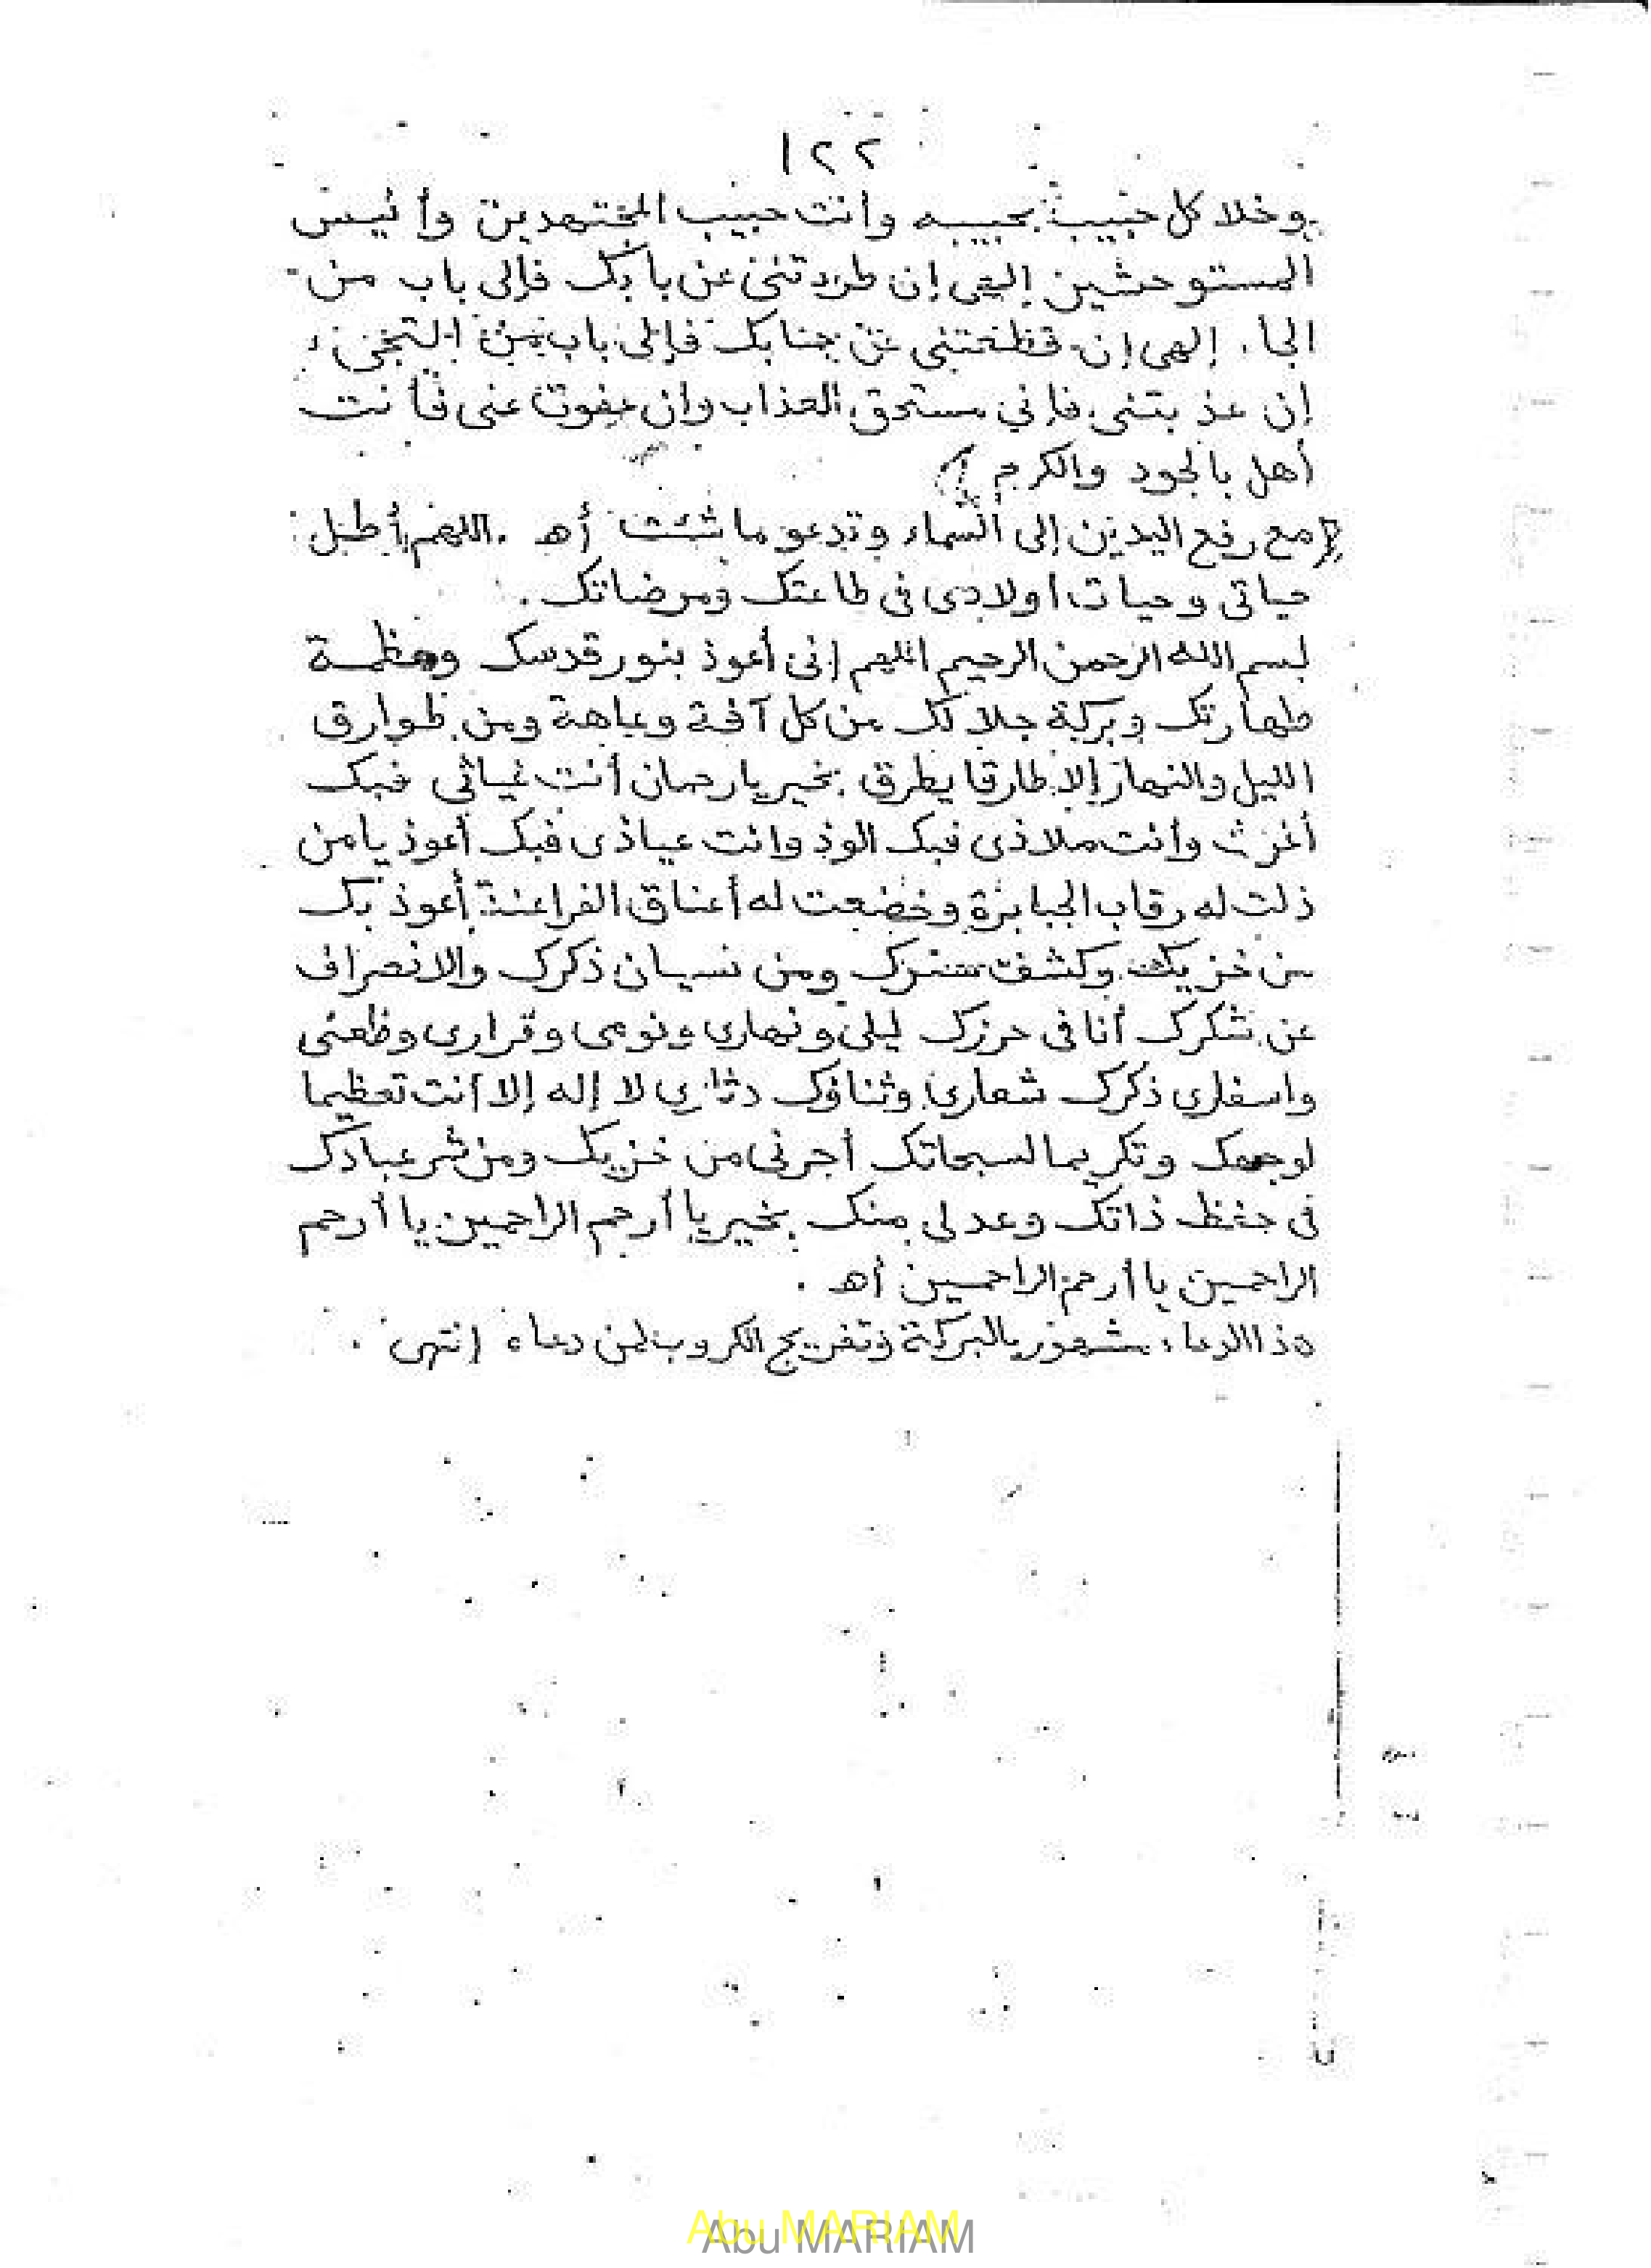 ١٢٢
وخلا كل حبيب بحبيبه وأنت حبيب المجتهدين وأنيس
المستوحشين إلهى إن طردتنى عن بابك فإلى باب من
الجأ. إلهى إن قطعتنى عن جنابك فإلى باب من التجئ
إن عذبتنى فإني مستحق العذاب وإن عفوت عنى فأنت
أهل بالجود والكرم
مع رفع اليدين إلى السماء وتدعو ما شئت أهـ . اللهم أطل
حياتى وحيات اولادى فى طاعتك ومرضاتك .
بسم الله الرحمن الرحيم اللهم إنى أعوذ بنور قدسك وعظمة
طهارتك وبركة جلالك من كل آفة وعاهة ومن طوارق
الليل والنهار إلا طارقا يطرق بخير يا رحمان أنت غياثي فبك
أغوث وأنت ملاذى فبك الوذ وانت عياذى فبك أعوذ يا من
ذلت له رقاب الجبابرة وخضعت له أعناق الفراعنة أعوذ بك
من خزيك وكشف سترك ومن نسيان ذكرك والانصراف
عن شكرك أنا فى حرزك ليلى ونهارى ونومى وقرارى وظعنى
واسفارى ذكرك شعارى وثناؤك دثارى لا إله إلا أنت تعظيما
لوجهك وتكريما لسبحاتك أجرنى من خزيك ومن شر عبادك
فى حفظ ذاتك وعد لى منك بخير يا أرحم الراحمين يا أرحم
الراحمين يا أرحم الراحمين أهـ .
هذا الدعاء مشهور بالبركة وتفريج الكروب لمن دعاه إنتهى .
Abu MARIAM